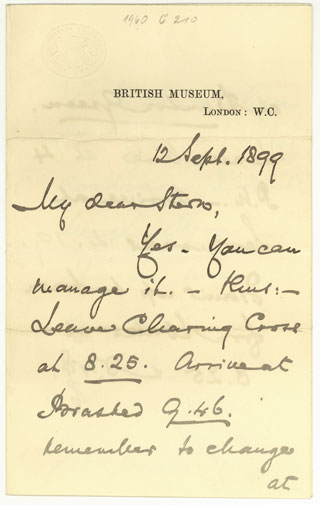 1960 G 210
BRITISH MUSEUM,
LONDON: W.C.
12 Sept. 1899
My dear Stern,
Yes - You can
manage it. - thus:-
Leave Charing Cross
at 8.25. Arrive at
9.46.
remember to change
at